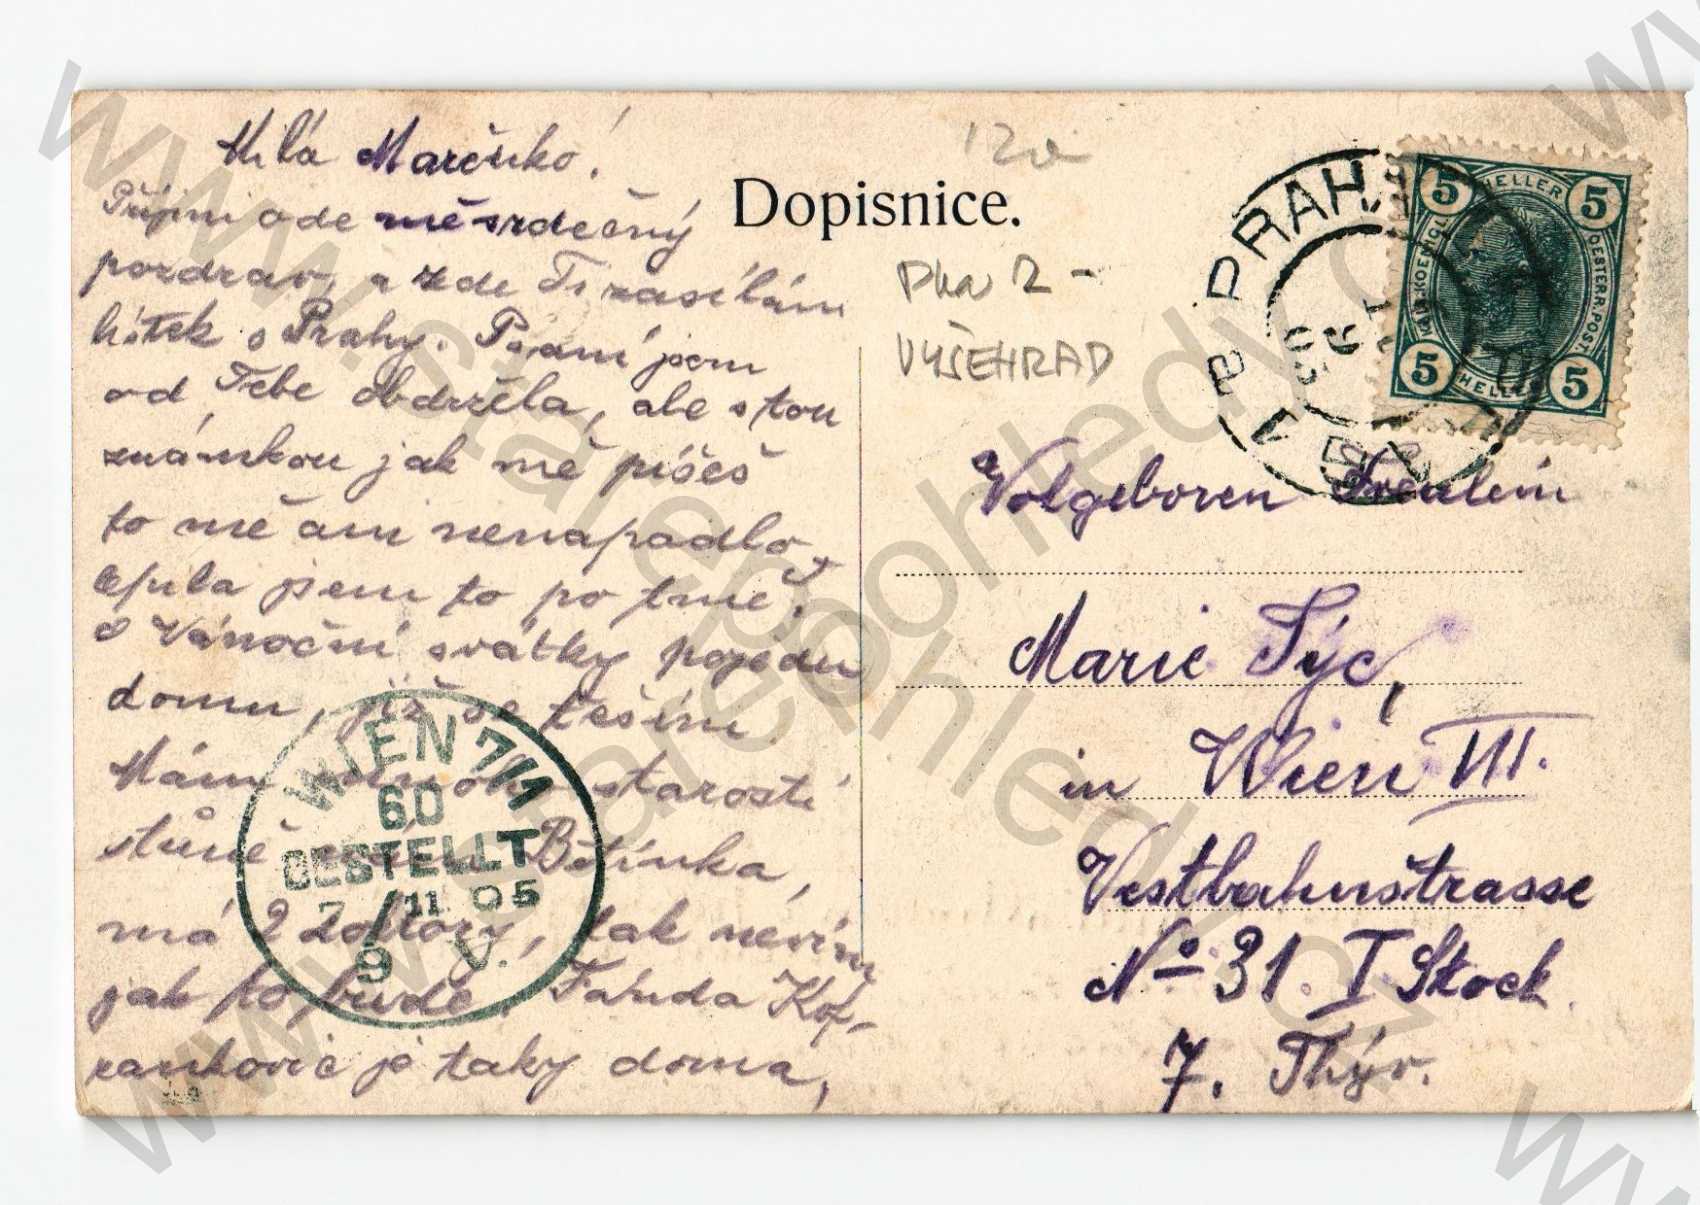 Milá Marčinko!
Přijmi ode mě srdečný
pozdrav, a zde Ti zasílám
lístek s Prahy. Psaní jsem
od Tebe obdržela, ale s tou
známkou jak mě píšeš
to mě ani nenapadlo,
lepila jsem to po tmě.
O Vánoční svátky pojedu
domu, již se těším.
Mám mnoho starostí
stůně Betinka,
má 2 doktory, tak nevím
jak to bude. Fanda Kof-
rankovic je taky doma,
Dopisnice.
12a
Pha 2 -
VYŠEHRAD
PRAHA
5 HELLER 5
KAIS. KOENIGL.
OESTERR. POST.
5 HELLER 5
Volgeboren Freulein
Marie Týc,
in Wien VII.
Vestbahnstrasse
No 31. I Stock.
7. Thýr.
WIEN 7/1
60
BESTELLT
7/11 05
9 V.
www.starepohledy.cz